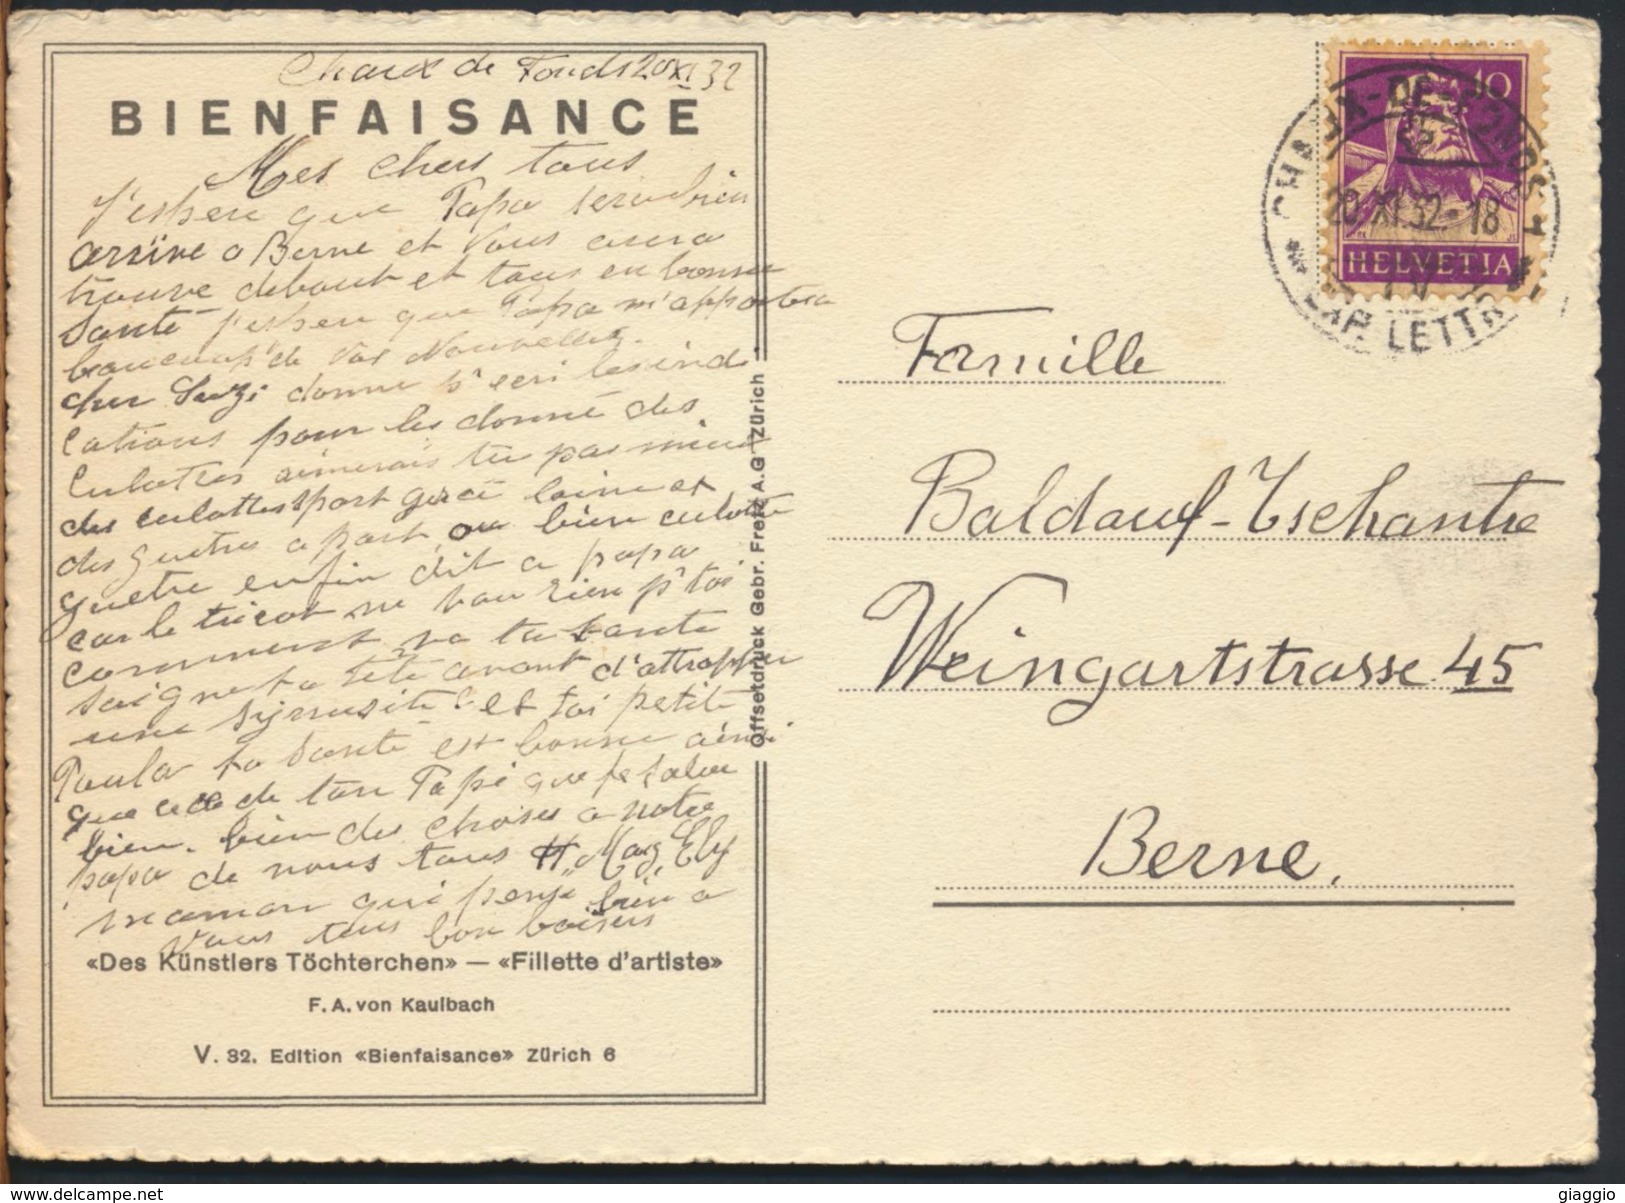 Chaux de Fonds 20 XI 32
BIENFAISANCE
Mes chers tous
J'espere que Papa sera bien
arrive a Berne et vous aura
trouve debout et tous en bonne
santé j'espere que Papa m'apportera
beaucoup de vos Nouvelles.
cher Suzi donne les indi
cations pour les donné des
culottes aimerais tu pas mieux
des culottes sport laine et
des guetres a part, ou bien culotte
guetre enfin dit a papa
car le tricot ne vau rien p'toi
comment va ta tante
soigne ta tête avant d'attrapper
une synusité? et toi petite
Paula ta santé est bonne ainsi
que celle de ton Papi que je salue
bien. bien des choses a notre
papa de nous tous Mag Ely
maman qui pense bien a
vous tous bon baisers
«Des Künstlers Töchterchen» — «Fillette d'artiste»
F. A. von Kaulbach
V. 32. Edition «Bienfaisance» Zürich 6
Offsetdruck Gebr. Fretz A.G Zürich
10
HELVETIA
CHAUX-DE-FONDS 1
20.XI.32-18
LETTR
Famille
Baldauf-Tschantre
Weingartstrasse 45
Berne.
giaggio
https://www.delcampe.net